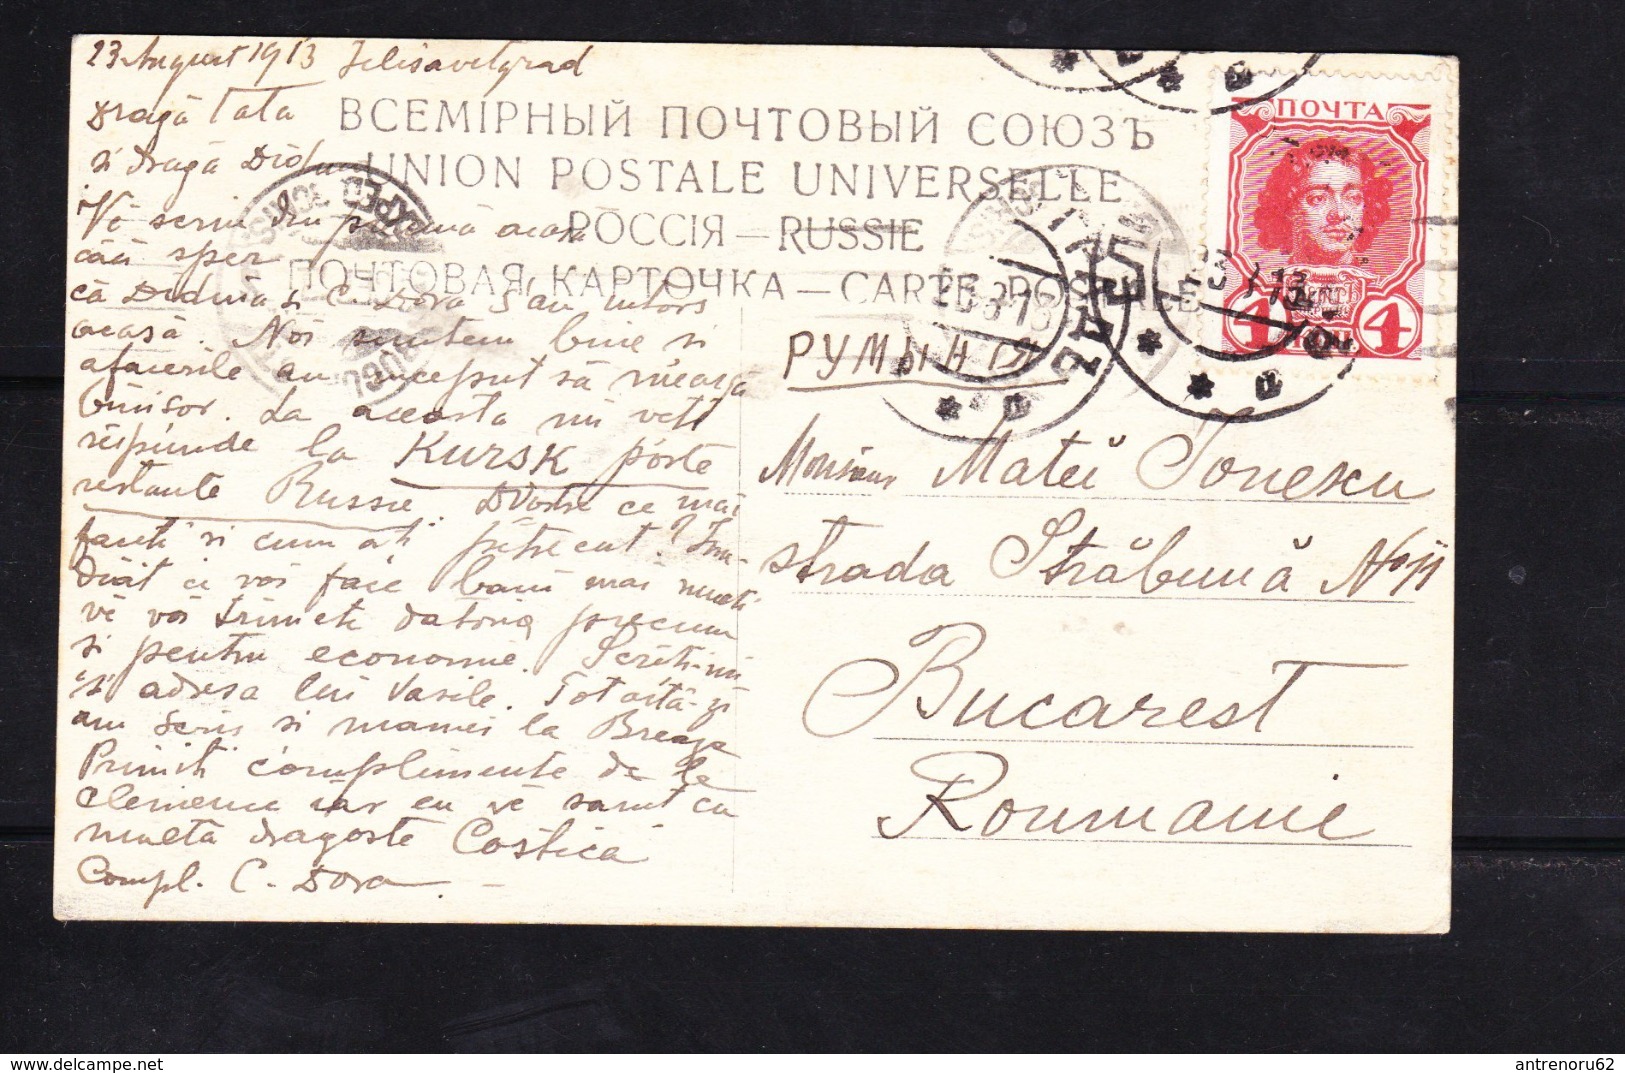 23 August 1913 Jelisavetgrad
Dragă Tata
si dragă Didu
Vă scriu din preună acasă
căci sper
că Diduia si C. Dora s'au intors
acasă. Noi suntem bine si
afacerile au inceput să meargă
binisor. La aceasta imi veti
răspunde la KURSK poste
restante Russie. DVostre ce mai
faceti si cum ati petrecut? Ime-
diat ce voi face bani mai multi
vă voi trimete datoria precum
si pentru economie. Scrieti-mi
si adresa lui Vasile. Tot astă-zi
am scris si mamei la Breaza
Primiti complimente de la
Clemence iar eu vă sărut cu
multă dragoste Costică
Compl. C. Dora
ВСЕМІРНЫЙ ПОЧТОВЫЙ СОЮЗЪ
UNION POSTALE UNIVERSELLE
РОССІЯ — RUSSIE
ПОЧТОВАЯ КАРТОЧКА — CARTE POSTALE
РУМЫНІЯ
Monsieur Matei Ionescu
strada Străbună No 11
Bucarest
Roumanie
ПОЧТА
4 4
antrenoru62